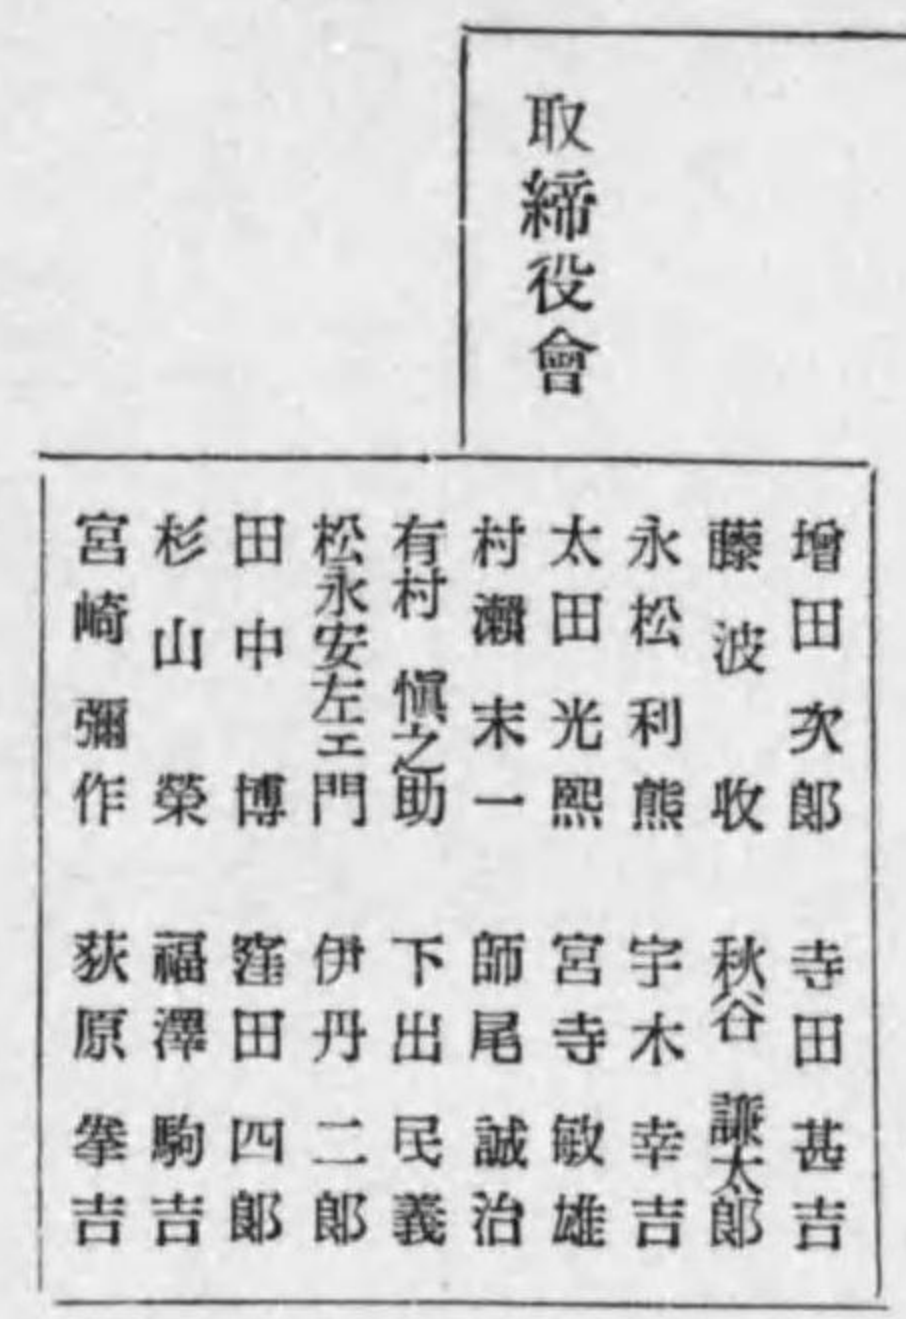 取締役會
增田次郎 寺田甚吉
藤波收 秋谷謙太郎
永松利熊 宇木幸吉
太田光熙 宮寺敏雄
村瀨末一 師尾誠治
有村愼之助 下出民義
松永安左エ門 伊丹二郎
田中博 窪田四郎
杉山榮 福澤駒吉
宮崎彌作 荻原拳吉